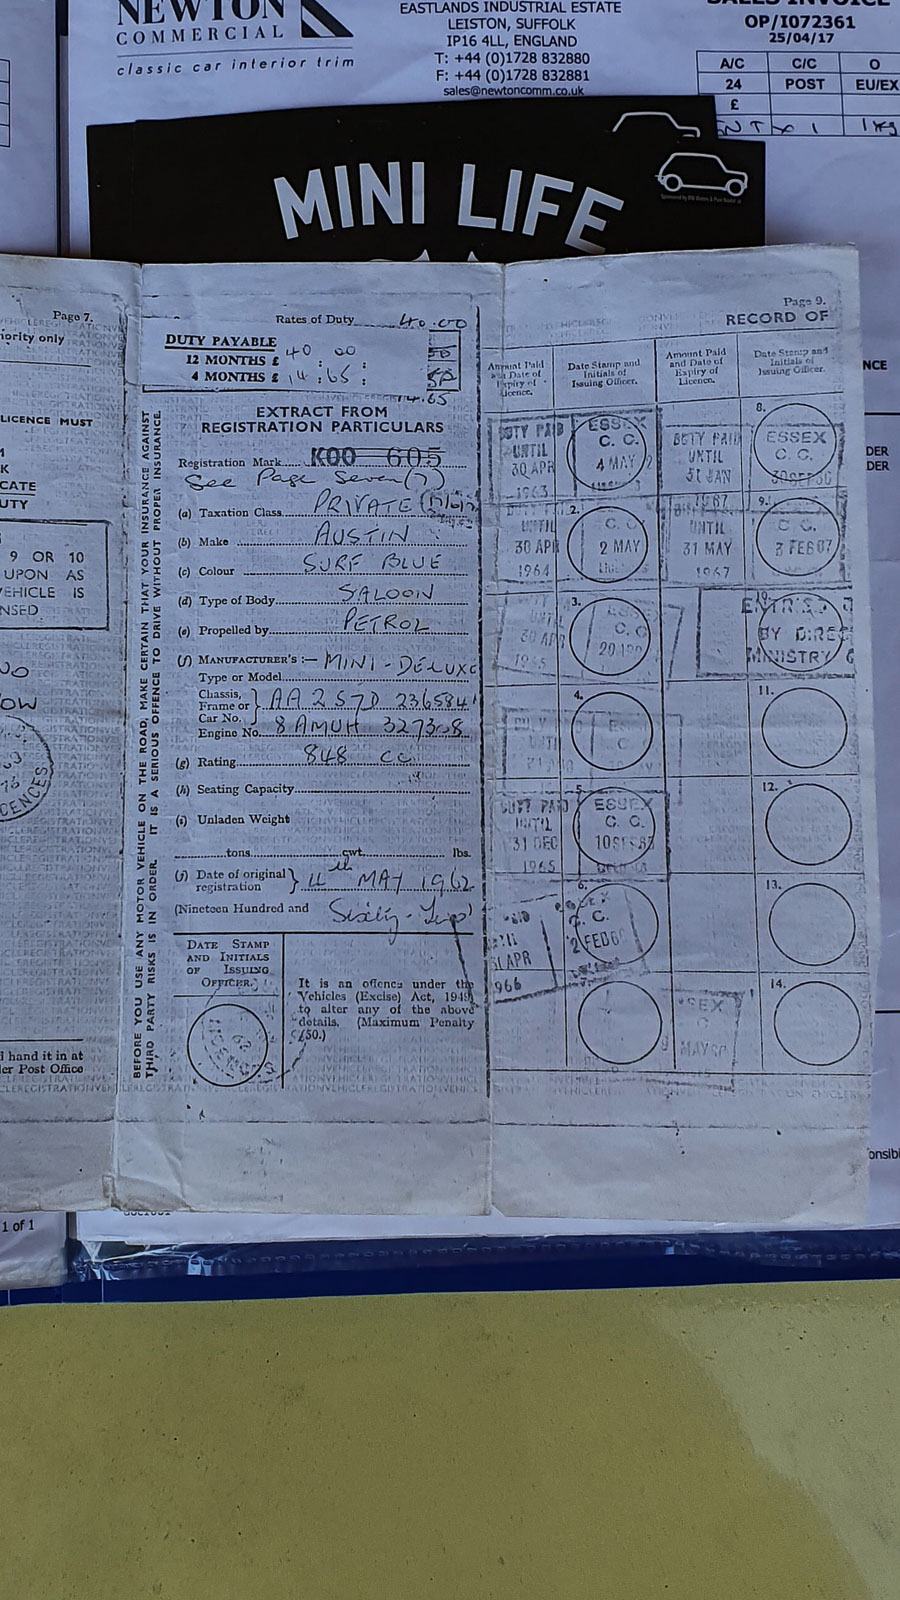 NEWTON
COMMERCIAL
classic car interior trim
EASTLANDS INDUSTRIAL ESTATE
LEISTON, SUFFOLK
IP16 4LL, ENGLAND
T: +44 (0)1728 832880
F: +44 (0)1728 832881
sales@newtoncomm.co.uk
SALES INVOICE
OP/I072361
25/04/17
A/C C/C O
24 POST EU/EX
£
MINI LIFE
Page 7.
ority only
LICENCE MUST
CATE
UTY
9 OR 10
UPON AS
VEHICLE IS
NSED
OW
CENCES
d hand it in at
er Post Office
1 of 1
BEFORE YOU USE ANY MOTOR VEHICLE ON THE ROAD, MAKE CERTAIN THAT YOUR INSURANCE AGAINST
THIRD PARTY RISKS IS IN ORDER. IT IS A SERIOUS OFFENCE TO DRIVE WITHOUT PROPER INSURANCE.
Rates of Duty 40.00
DUTY PAYABLE
12 MONTHS £ 40 : 00 :
4 MONTHS £ 14 : 65 :
14.65
EXTRACT FROM
REGISTRATION PARTICULARS
Registration Mark KOO 605
See Page Seven (7)
(a) Taxation Class PRIVATE
(b) Make AUSTIN
(c) Colour SURF BLUE
(d) Type of Body SALOON
(e) Propelled by PETROL
(f) MANUFACTURER'S :— MINI-DELUXE
Type or Model
Chassis,
Frame or
Car No. AA2S7D 236584
Engine No. 8AMUH 327308
(g) Rating 848 cc
(h) Seating Capacity
(i) Unladen Weight
tons cwt. lbs.
(j) Date of original
registration 11th MAY 1962
(Nineteen Hundred and Sixty-Two)
DATE STAMP
AND INITIALS
OF ISSUING
OFFICER.
It is an offence under the
Vehicles (Excise) Act, 1949,
to alter any of the above
details. (Maximum Penalty
£50.)
Page 9.
RECORD OF
Amount Paid
and Date of
Expiry of
Licence.
Date Stamp and
Initials of
Issuing Officer.
Amount Paid
and Date of
Expiry of
Licence.
Date Stamp and
Initials of
Issuing Officer.
DUTY PAID
UNTIL
30 APR
1963
ESSEX
C. C.
4 MAY
DUTY PAID
UNTIL
31 JAN
1967
8.
ESSEX
C. C.
UNTIL
30 APR
1964
2.
C. C.
2 MAY
UNTIL
31 MAY
1967
9.
C. C.
3 FEB 67
3.
ESSEX
C. C.
10.
BY DIREC
MINISTRY
4.
11.
DUTY PAID
UNTIL
31 DEC
1965
5.
ESSEX
C. C.
12.
6.
C. C.
2 FEB
31 APR
966
13.
14.